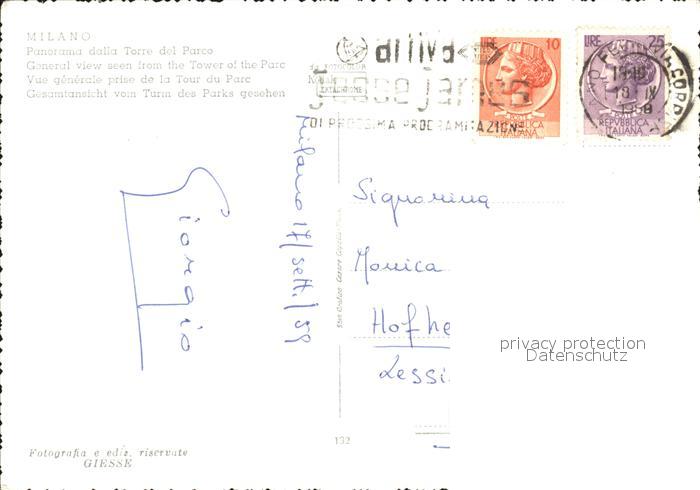 MILANO
Panorama dalla Torre del Parco
General view seen from the Tower of the Parc
Vue générale prise de la Tour du Parc
Gesamtansicht vom Turm des Parks gesehen
da FOTOCOLOR
KODAK
EKTACHROME
arriva
jesse james
DI PROSSIMA PROGRAMMAZIONE
10
POSTE
REPVBBLICA
ITALIANA
LIRE 25
POSTE
REPVBBLICA
ITALIANA
1959
Milano 17/sett./59
Giorgio
Signorina
Monica
Hofhe
Lessi
privacy protection
Datenschutz
132
Fotografia e ediz. riservate
GIESSE